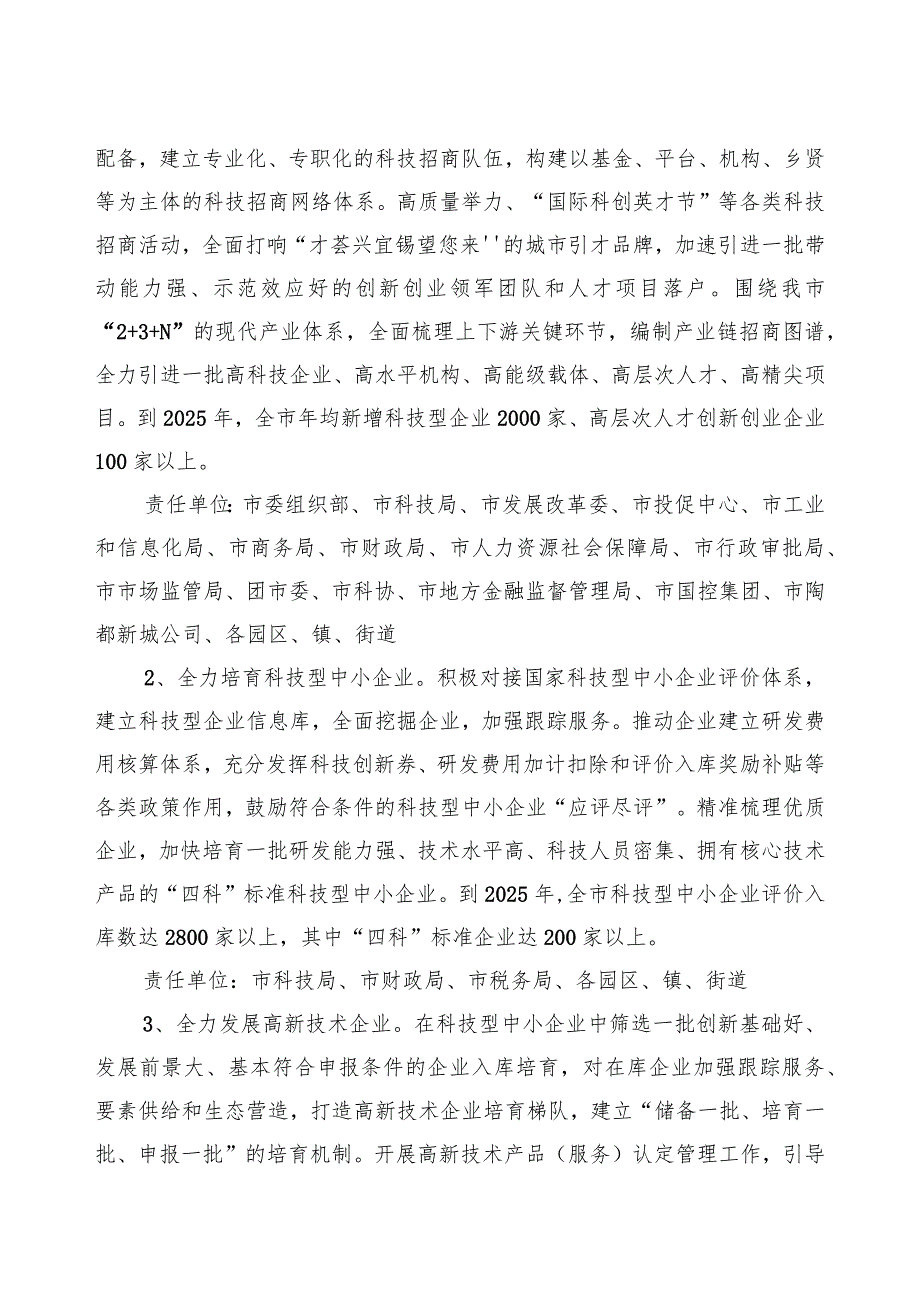 配备，建立专业化、专职化的科技招商队伍，构建以基金、平台、机构、乡贤
等为主体的科技招商网络体系。高质量举力、“国际科创英才节”等各类科技
招商活动，全面打响“才荟兴宜锡望您来''的城市引才品牌，加速引进一批带
动能力强、示范效应好的创新创业领军团队和人才项目落户。围绕我市
“2+3+N”的现代产业体系，全面梳理上下游关键环节，编制产业链招商图谱，
全力引进一批高科技企业、高水平机构、高能级载体、高层次人才、高精尖项
目。到 2025 年，全市年均新增科技型企业 2000 家、高层次人才创新创业企业
100 家以上。
责任单位：市委组织部、市科技局、市发展改革委、市投促中心、市工业
和信息化局、市商务局、市财政局、市人力资源社会保障局、市行政审批局、
市市场监管局、团市委、市科协、市地方金融监督管理局、市国控集团、市陶
都新城公司、各园区、镇、街道
2、全力培育科技型中小企业。积极对接国家科技型中小企业评价体系，
建立科技型企业信息库，全面挖掘企业，加强跟踪服务。推动企业建立研发费
用核算体系，充分发挥科技创新券、研发费用加计扣除和评价入库奖励补贴等
各类政策作用，鼓励符合条件的科技型中小企业“应评尽评”。精准梳理优质
企业，加快培育一批研发能力强、技术水平高、科技人员密集、拥有核心技术
产品的“四科”标准科技型中小企业。到 2025 年,全市科技型中小企业评价入
库数达 2800 家以上，其中“四科”标准企业达 200 家以上。
责任单位：市科技局、市财政局、市税务局、各园区、镇、街道
3、全力发展高新技术企业。在科技型中小企业中筛选一批创新基础好、
发展前景大、基本符合申报条件的企业入库培育，对在库企业加强跟踪服务、
要素供给和生态营造，打造高新技术企业培育梯队，建立“储备一批、培育一
批、申报一批”的培育机制。开展高新技术产品（服务）认定管理工作，引导